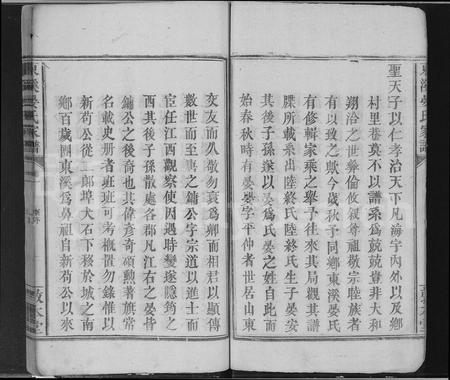 聖天子以仁孝治天下凡海宇內外以及鄉
村里巷莫不以譜系爲兢兢豈非大和
翔洽之世彝倫攸叙尊祖敬宗睦族者
有以致之歟今歲秋予同鄉東溪晏氏
有修輯家乘之舉予往來其局觀其譜
牒所載系出陸終氏陸終氏生子晏安
其後子孫遂以爲氏晏之姓自此而
始春秋時有晏嬰字平仲者世居山東
交友而久敬勿衰爲鄉而相君以顯傳
數世而至唐之鏞公字宗道以進士而
宦任江西觀察使因遇時變遂隱筠之
西其後子孫散處各郡凡江右之晏皆
鏞公之後裔也其偉彥奇碩勲著旗常
名載史册者班班可考概置勿錄惟以
新苟公從二郎埠大石下移於城之南
鄉百歲團東溪爲鼻祖自新苟公以來
東溪晏氏家譜
敦本堂